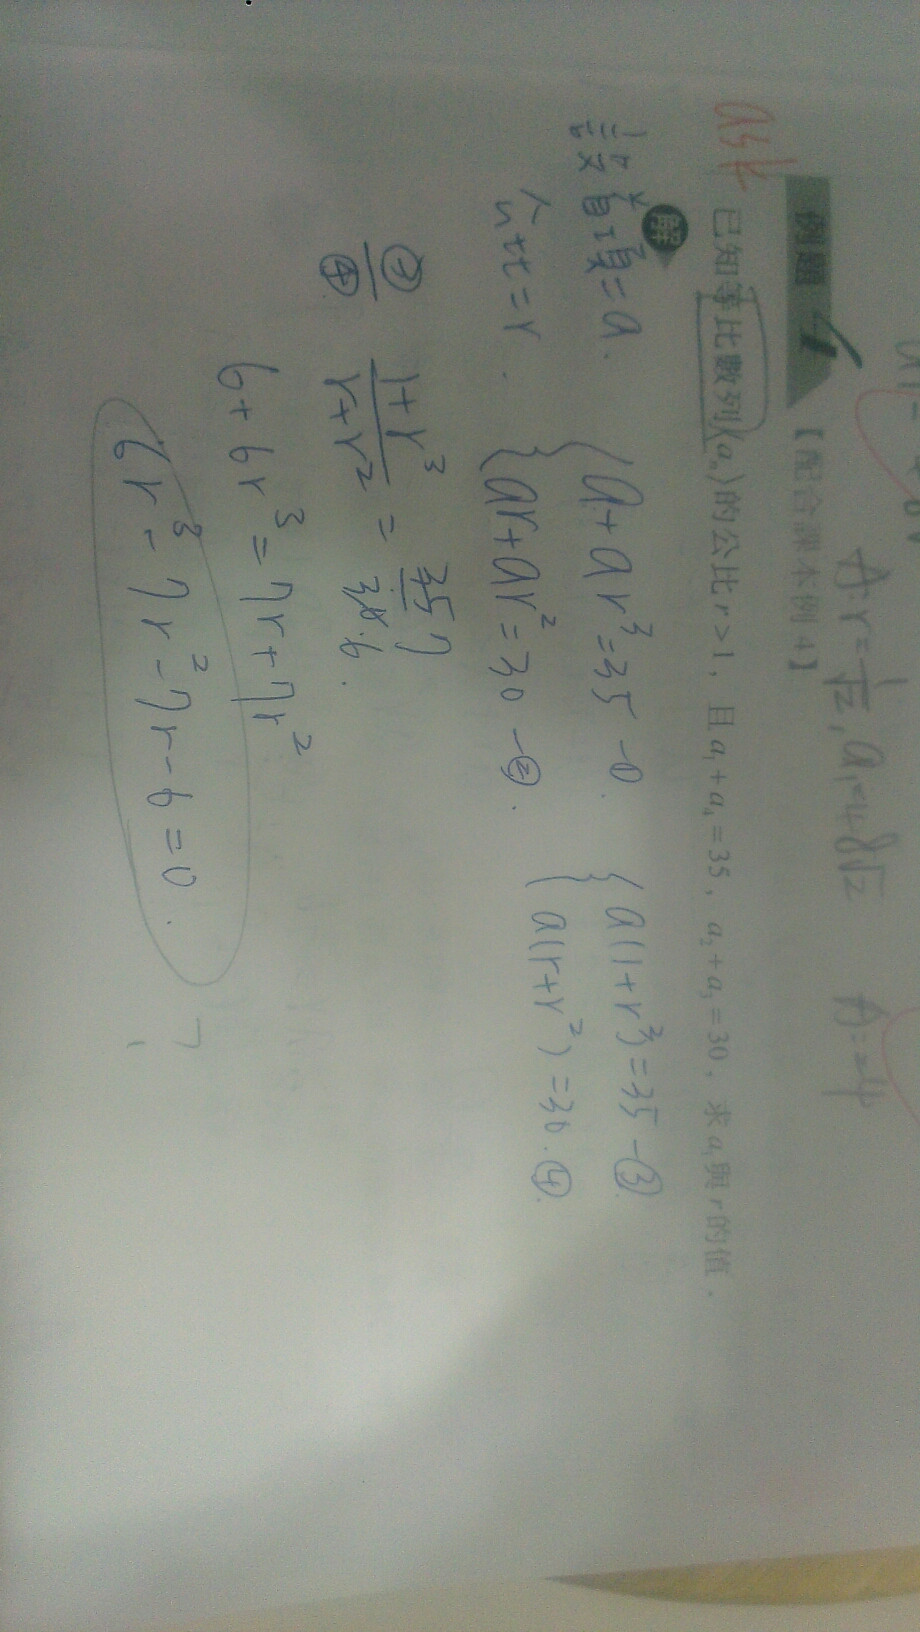 A: r=1/√2, a₁=48√2 A:=4
例題 4 【配合課本例 4】
ask 已知等比數列⟨aₙ⟩的公比 r>1，且 a₁+a₄=35，a₂+a₃=30，求 a₁與 r 的值．
解
設首項=a.
公比=r.
{a+ar³=35 -①.
{ar+ar²=30 -②.
{a(1+r³)=35 -③.
{a(r+r²)=30.④.
③/④ (1+r³)/(r+r²) = 35 7/30.6.
6+6r³=7r+7r²
6r³-7r²-7r-6=0.